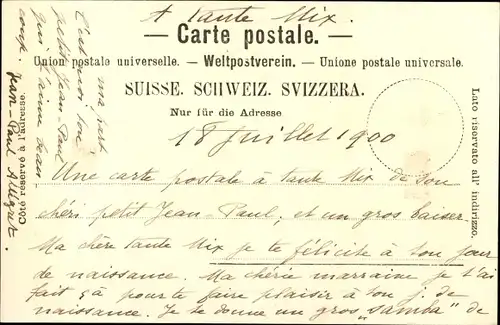 A Tante Mix.
— Carte postale. —
Union postale universelle. — Weltpostverein. — Unione postale universale.
SUISSE. SCHWEIZ. SVIZZERA.
Nur für die Adresse
18 Juillet 1900
Une carte postale à tante Mix de son
chéri petit Jean-Paul, et un gros baiser.
Ma chère tante Mix je te félicite à ton jour
de naissance. Ma chérie marraine je t'ai
fait çà pour te faire plaisir à ton j. de
naissance. Je te donne un gros "samba" de
ma part
C'est moi ton
petit Jean-Paul
qui t'aime
coup.
Jean-Paul
Côté réservé à l'adresse.
Lato riservato all' indirizzo.